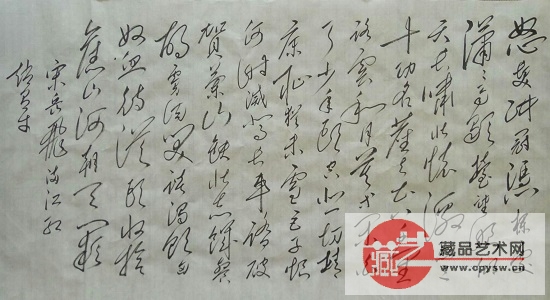 怒发冲冠憑栏处
潇〻雨歇抬望眼仰
天长啸壮怀激烈三
十功名尘与土八千里
路云和月莫等闲白
了少年头空悲切靖
康耻犹未雪臣子恨
何时灭驾长车踏破
贺兰山缺壮志饥餐
胡虏肉笑谈渴饮匈
奴血待从头收拾
舊山河朝天阙
宋岳飞满江红
藏品艺术网
www.cpysw.cn